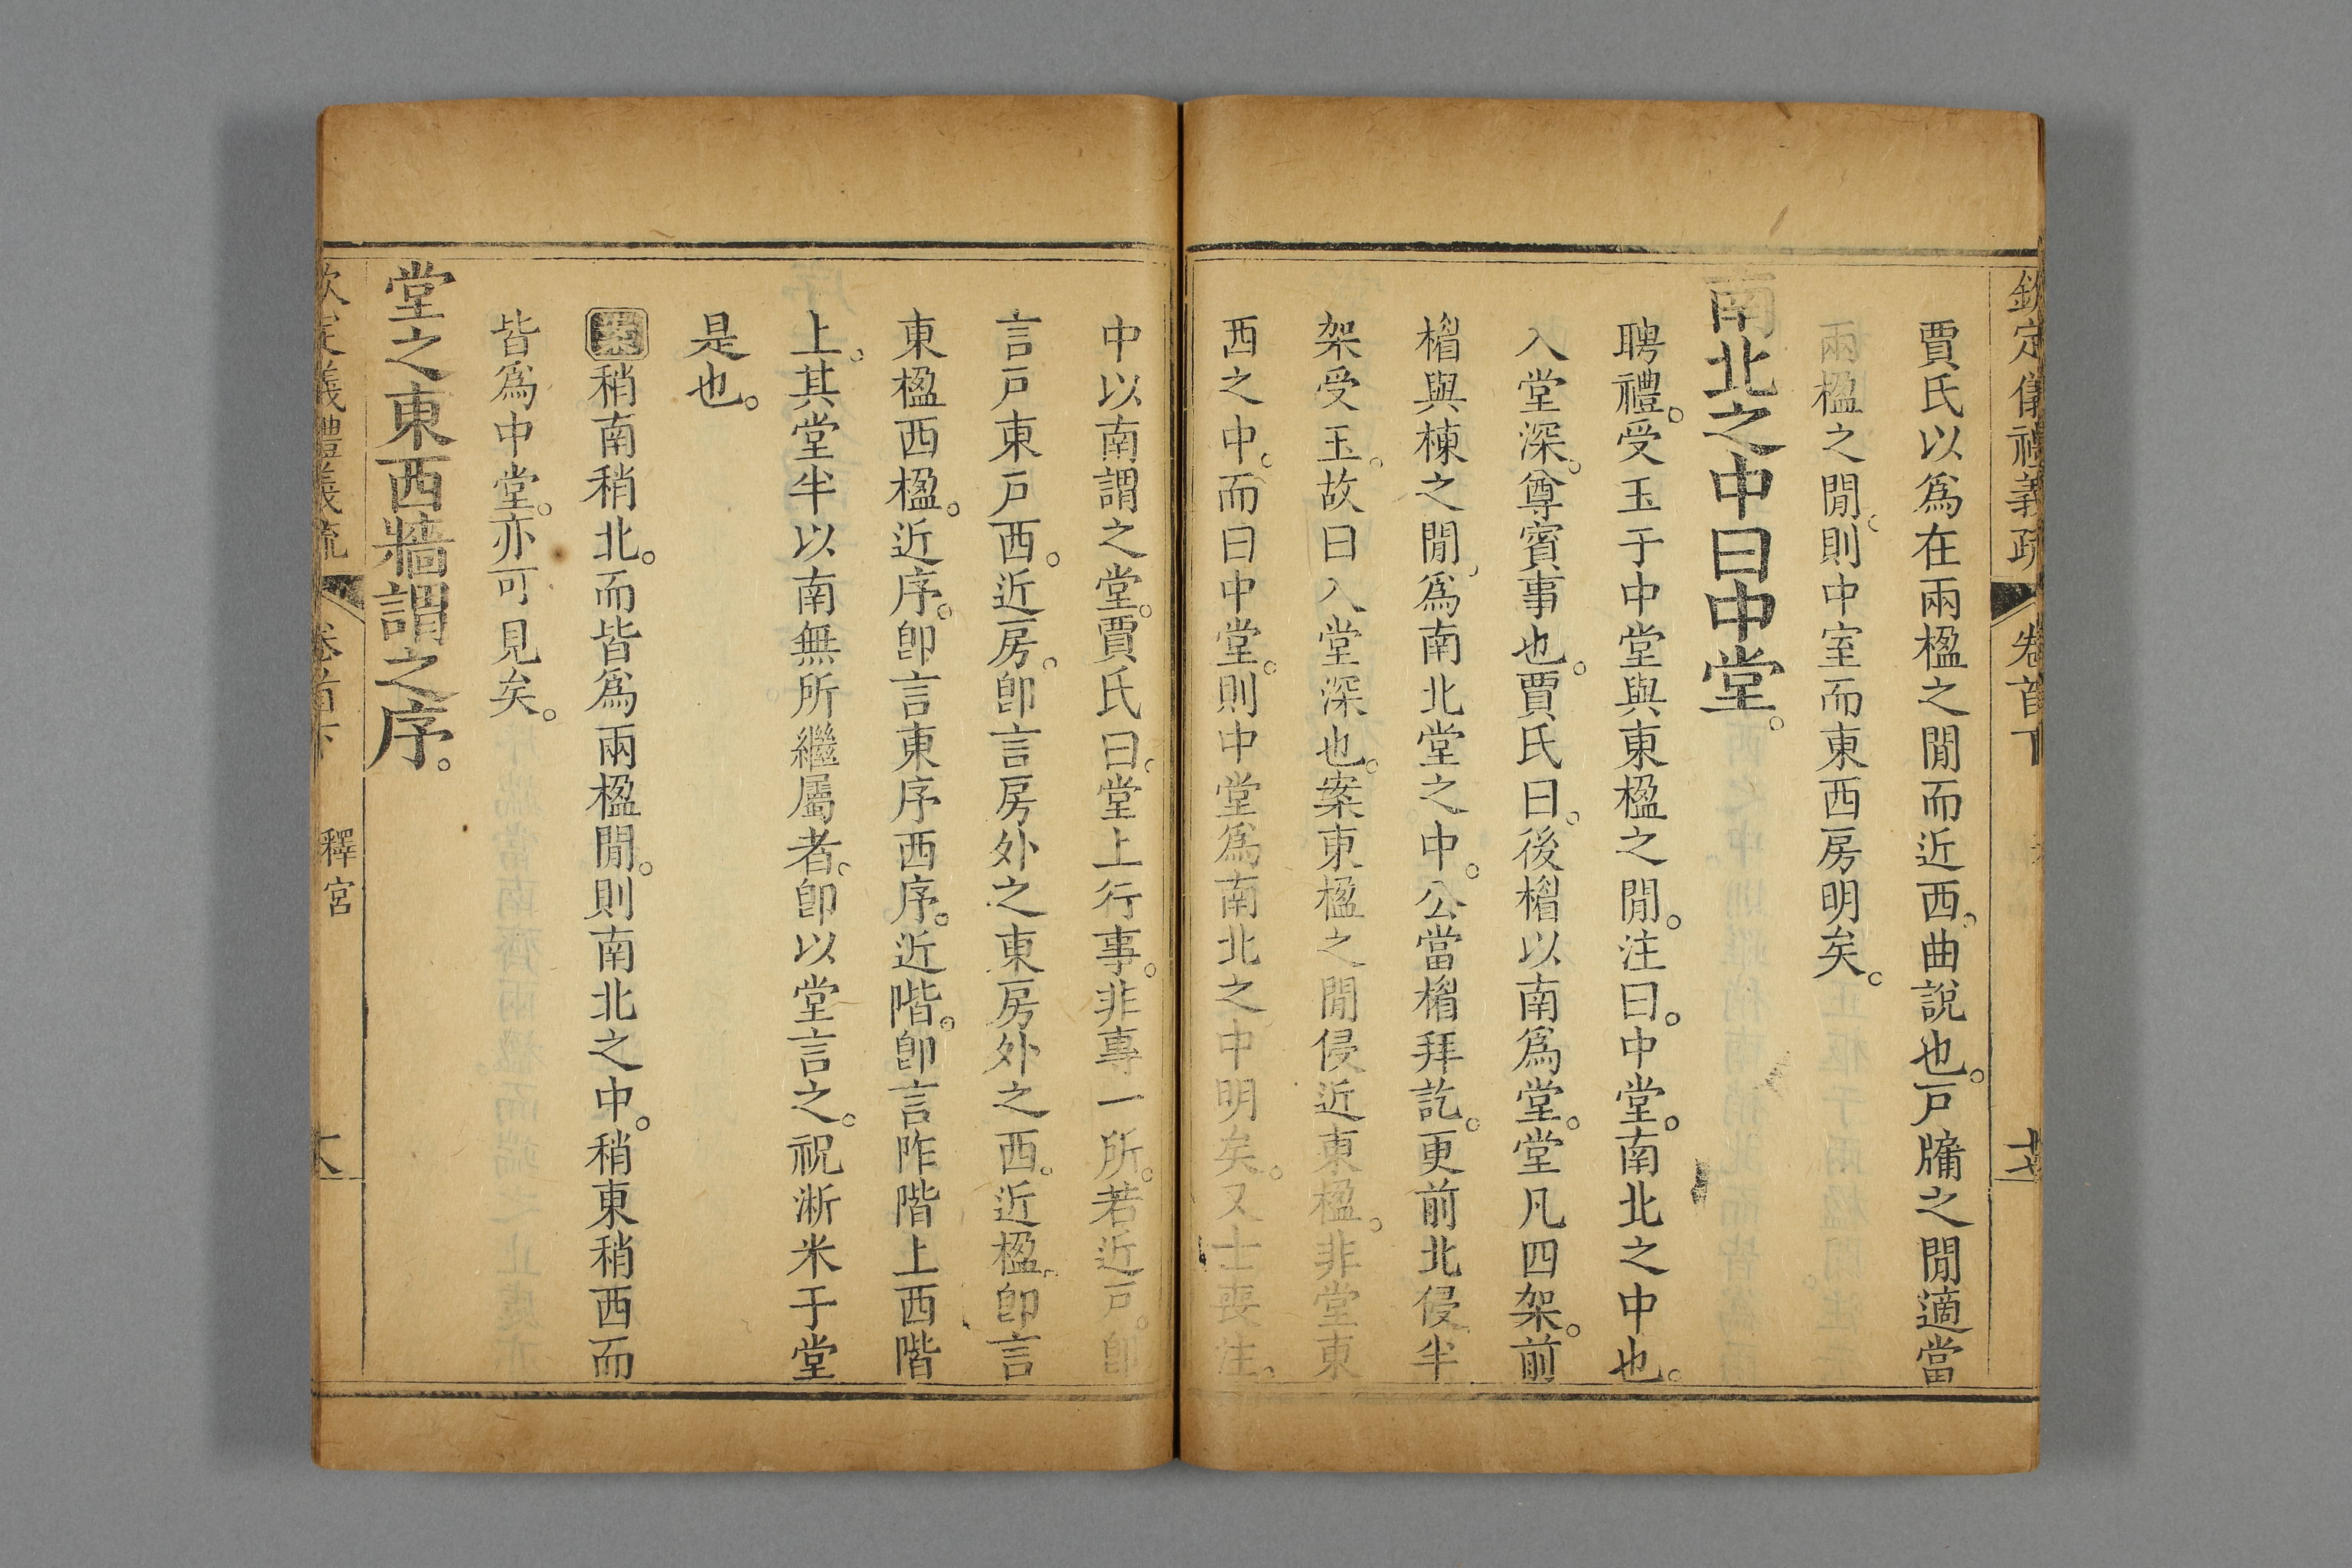 欽定儀禮義疏 卷首下
賈氏以爲在兩楹之閒而近西。曲說也。戸牗之閒適當
兩楹之閒。則中室而東西房明矣。
南北之中曰中堂。
聘禮。受玉于中堂與東楹之閒。注曰。中堂。南北之中也。
入堂深。尊賓事也。賈氏曰。後楣以南爲堂。堂凡四架。前
楣與棟之閒、爲南北堂之中。公當楣拜訖。更前北侵半
架受玉。故曰入堂深也。案東楹之閒侵近東楹。非堂東
西之中。而曰中堂。則中堂爲南北之中明矣。又士喪注、
中以南謂之堂。賈氏曰。堂上行事。非專一所。若近戸。卽
言戸東戸西。近房。卽言房外之東房外之西。近楹、卽言
東楹西楹。近序。卽言東序西序。近階。卽言阼階上西階
上。其堂半以南無所繼屬者。卽以堂言之。祝淅米于堂
是也。
案稍南稍北。而皆爲兩楹閒。則南北之中。稍東稍西而
皆爲中堂。亦可見矣。
堂之東西牆謂之序。
欽定儀禮義疏 卷首下 釋宮